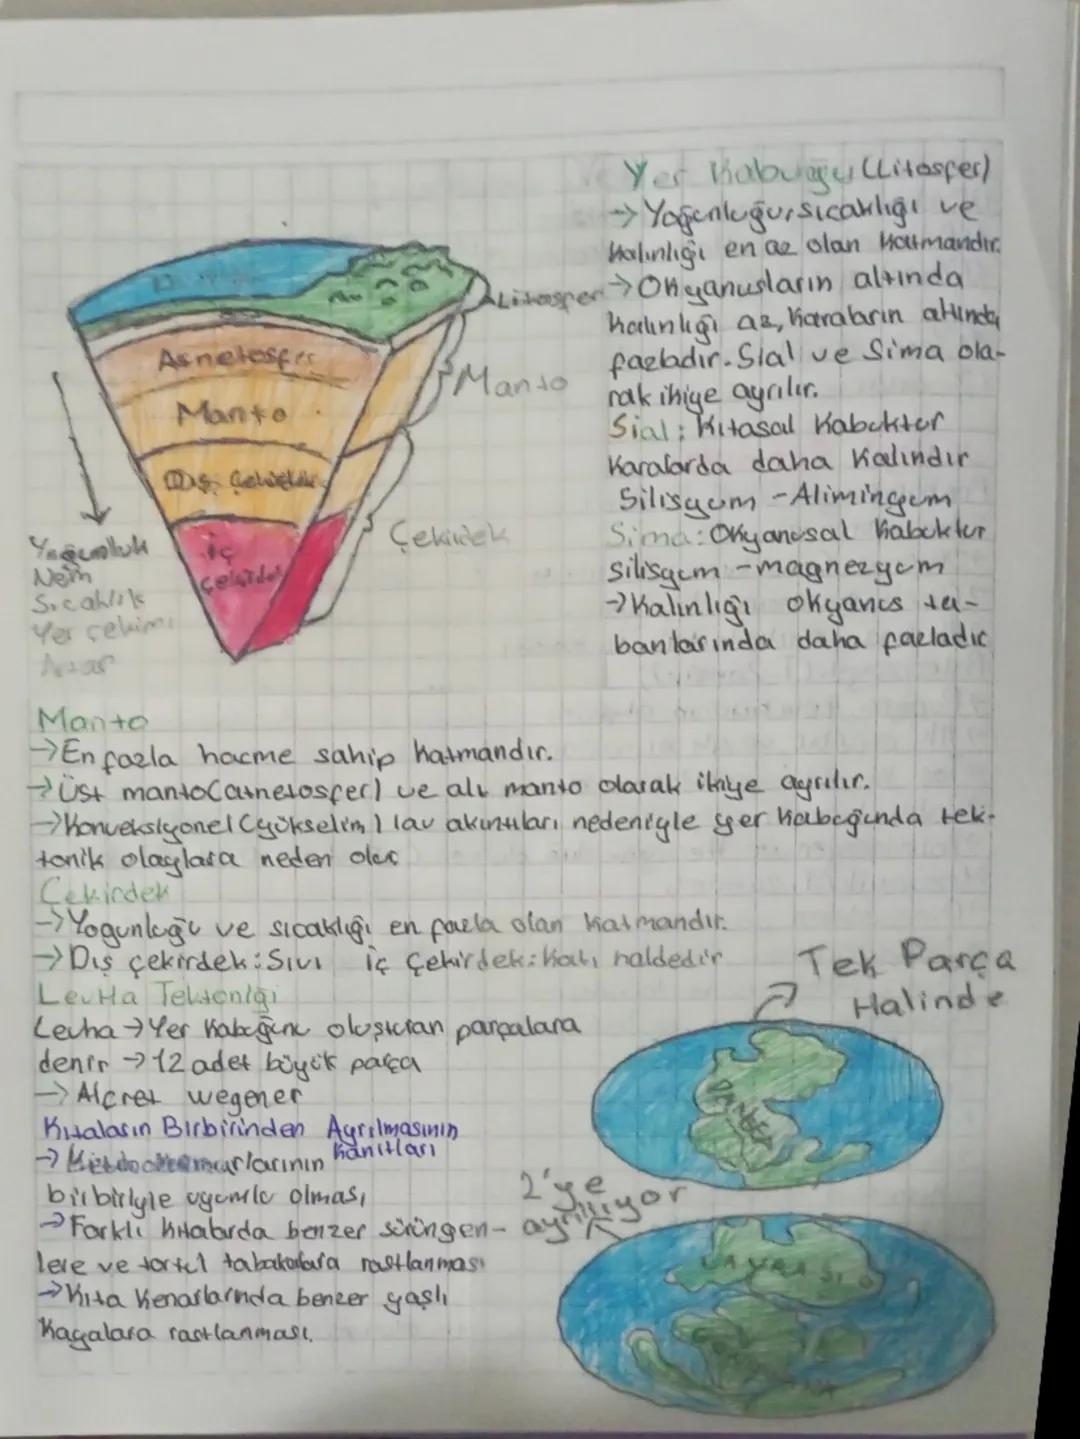 Yer Kabuğu (Litosfer)
→ Yoğunluğu, sıcaklığı ve
kalınlığı en az olan katmandır.
→ Okyanusların altında
kalınlığı az, karaların altında
fazladır. Sial ve Sima ola-
rak ikiye ayrılır.
Sial: Kıtasal Kabuktur
Karalarda daha Kalındır
Silisyum - Aliminyum
Sima: Okyanusal Kabuktur
silisyum - magnezyum
→ Kalınlığı okyanus ta-
banlarında daha fazladır
Litosfer
Manto
Çekirdek
Asnetosfer
Manto
Dış Çekirdek
iç
çekirdek
Yoğunluk
Nem
Sıcaklık
Yer çekimi
Artar
Manto
→ En fazla hacme sahip katmandır.
→ Üst manto(asnetosfer) ve alt manto olarak ikiye ayrılır.
→ Konveksiyonel (yükselim) lav akıntıları nedeniyle yer kabuğunda tek-
tonik olaylara neden olur
Çekirdek
→ Yogunluğu ve sıcaklığı en fazla olan katmandır.
→ Dış çekirdek: Sıvı iç çekirdek: Katı haldedir
Levha Tektoniği
Levha → Yer Kabuğunu oluşturan parçalara
denir → 12 adet büyük parça
→ Alfret wegener
Kıtaların Birbirinden Ayrılmasının
Kanıtları
→
birbiriyle uyumlu olması
→ Farklı kıtalarda benzer sürüngen-
lere ve tortul tabakalara rastlanması
→ Kıta kenarlarında benzer yaşlı
Kayalara rastlanması.
Tek Parça
Halinde
PANGEA
2'ye
ayrılıyor
LAVRASIA
GONDVANA